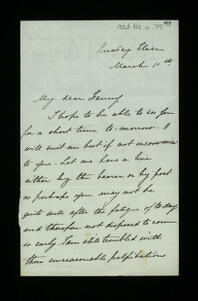 March 11th
My dear Fanny
I hope to be able to see you
for a short time to-morrow. It
will suit me best if not inconvenient
to you. Let me have a line
either by the bearer or by post
as perhaps you may not be
quite well after the fatigue of to day
and therefore not disposed to come
so early. I am still troubled with
those unreasonable palpitations